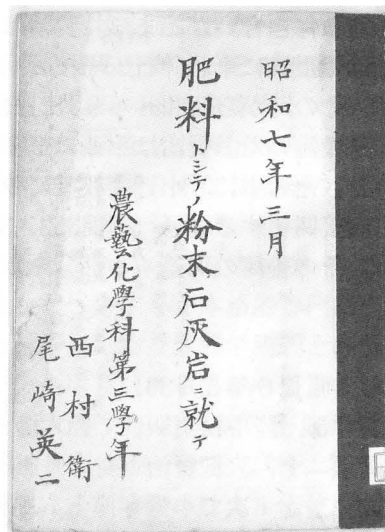 昭和七年三月
肥料トシテノ粉末石灰岩ニ就テ
農藝化學科第三學年
西村衛
尾崎英二